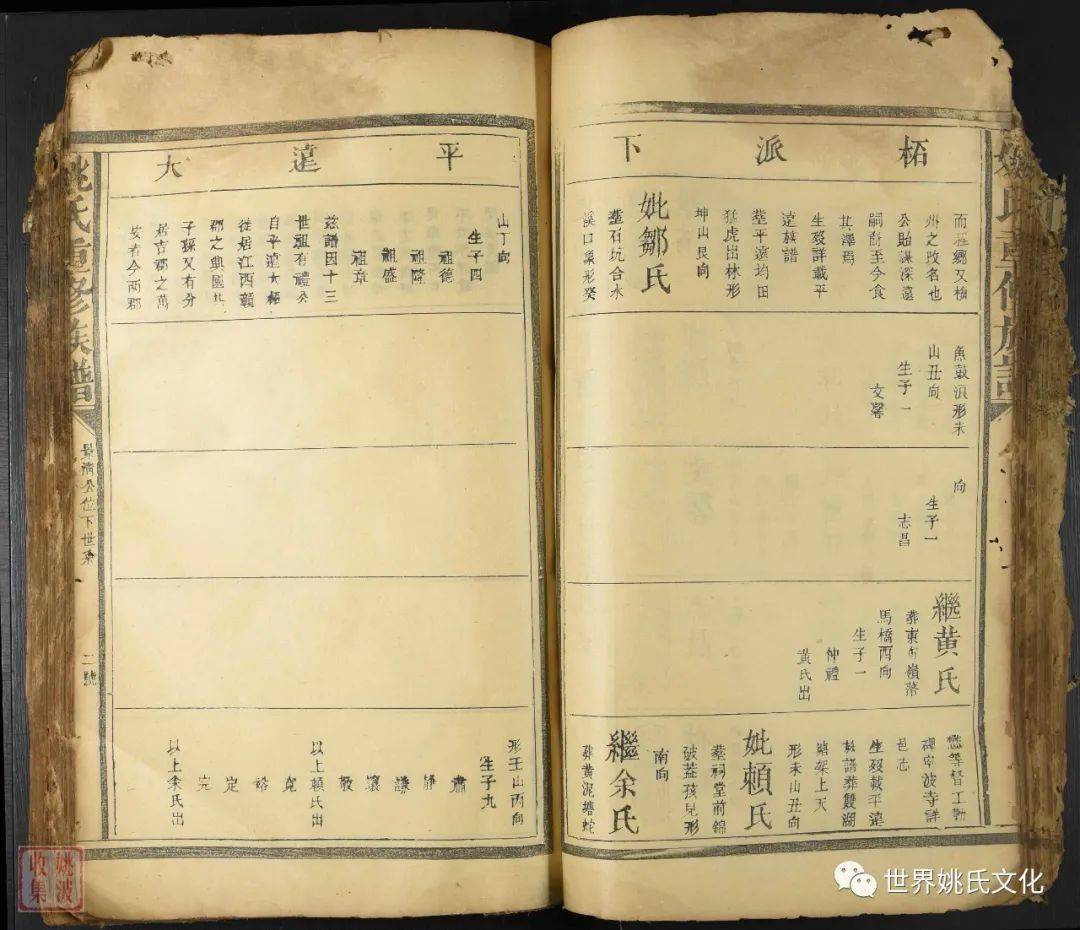 柘派下
而程鄉又梅
州之改名也
公貽謀深遠
嗣衍至今食
其澤焉
生歿詳載平
遠族譜
塟平遠均田
猛虎出林形
坤山艮向
妣鄒氏
塟石坑合水
溪口象形癸
魚鼓浪形未
山丑向
生子一
文馨
向
生子一
志昌
繼黃氏
馬橋酉向
生子一
仲禮
黃氏出
懋等督工勒
碑寧波寺詳
邑志
生歿載平遠
族譜葬雙湖
嬉架上天
形未山丑向
妣賴氏
塟祠堂前錦
被蓋孩兒形
南向
繼余氏
葬黃泥塘蛇
平遠大
山丁向
生子四
祖德
祖隆
祖盛
祖章
茲譜因十三
世祖有禮公
自平遠大柘
徙居江西贛
郡之興國共
子孫又有分
居吉郡之萬
安者今兩郡
形壬山丙向
生子九
肅
靜
謙
讓
毅
以上賴氏出
寬
裕
定
完
以上余氏出
姚氏重修族譜
景清公位下世系
二號
姚波
收集
世界姚氏文化